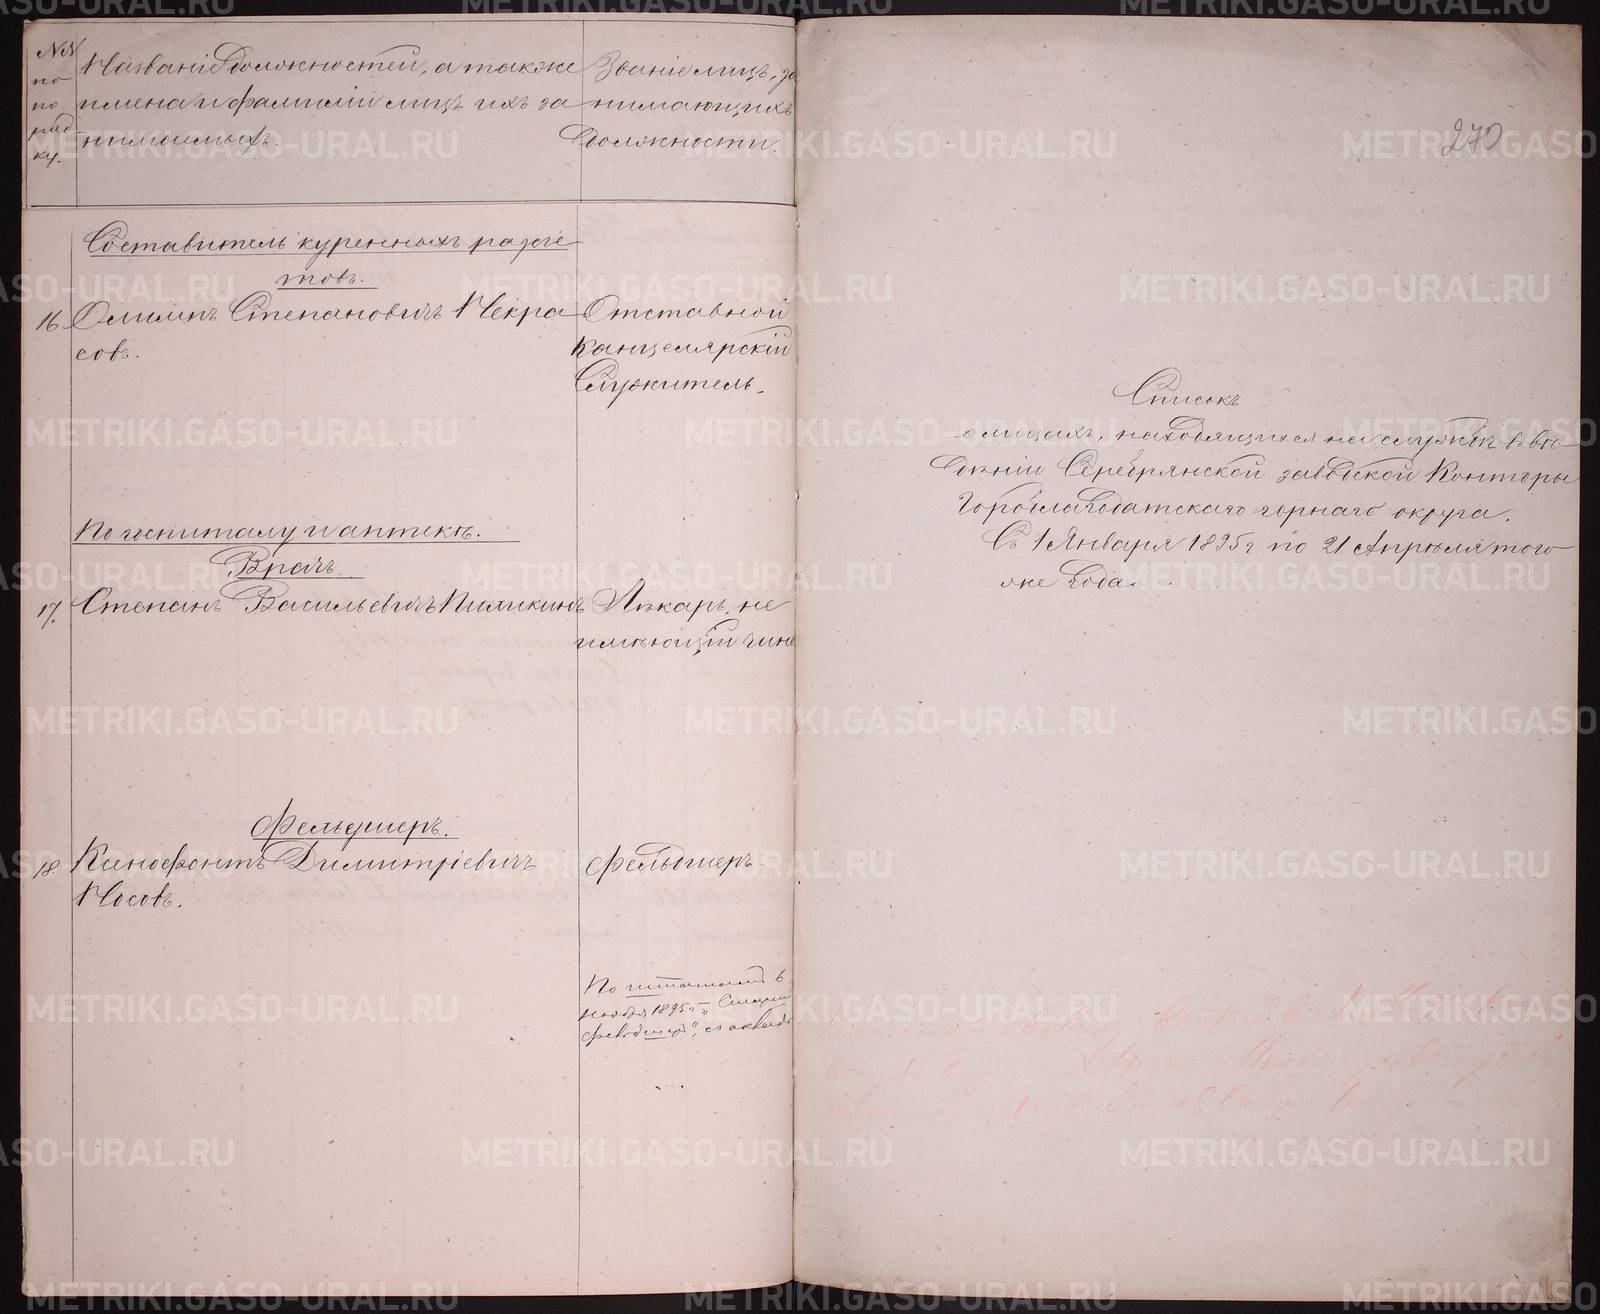 NN по по ряд ку.
Названiе должностей, а также
имена и фамилiи лицъ ихъ за
нимаемыхъ.
Званiе лицъ, за
нимающихъ
должности.
Составитель куренныхъ расче
товъ.
16 Олимпъ Степановичъ Некра
совъ.
Отставной
Канцелярскiй
Служитель.
По госпиталу и аптекѣ.
Врачъ.
17. Степанъ Васильевичъ
Лѣкарь, не
имѣющiй чина
Фельдшеръ.
18. Ксенофонтъ Димитрiевичъ
Носовъ.
Фельдшеръ
По
Ноября 1895 г.
270
Списокъ
о лицахъ, находящихся на службѣ въ вѣ
дѣнiи Серебрянской заводской Конторы
Гороблагодатскаго горнаго округа.
Съ 1 Января 1895 г. по 21 Апрѣля того
же года.
METRIKI.GASO-URAL.RU